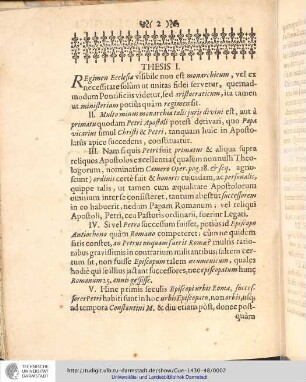 2
THESIS I.
Regimen Ecclesiæ visibile non est monarchicum, vel ex
necessitate solùm ut unitas fidei servetur, quemad-
modum Pontificiis videtur, sed aristocraticum, ita tamen
ut ministerium potiùs quàm regimen sit.
II. Multo minus monarchia talis juris divini est, aut à
primatu quodam Petri Apostoli potest derivari, quo Papa
vicarius simul Christi & Petri, tanquam huic in Aposto-
latûs apice succedens, constituatur.
III. Nam si quis Petri fuit primatus & aliqua supra
reliquos Apostolos excellentia (qualem nonnulli Theo-
logorum, nominatim Camero Oper. pag. 18. & seq. agno-
scunt) ordinis certè fuit & honoris cujusdam, ac personalis,
quippe talis, ut tamen cum æqualitate Apostolorum
omnium inter se consisteret, tantum abest ut successorem
in eo habuerit, nedum Papam Romanum, vel reliqui
Apostoli, Petri, ceu Pastoris ordinarii, fuerint Legati.
IV. Si vel Petro successum fuisset, potius id Episcopo
Antiocheno quàm Romano competeret: cùm ne quidem
satis constet, an Petrus unquam fuerit Romæ? multis ratio-
nabus gravissimis in contrarium militantibus: saltem cer-
tum sit, non fuisse Episcopum talem œcumenicum, quales
hodie se illius jactant successores, nec episcopatum hunc
Romanum 25. annis gessisse.
V. Hinc primis seculis Episcopi urbis Romæ, succes-
sores Petri habiti sunt in hoc urbis Episcopatu, non orbis, usq;
ad tempora Constantini M. & diu etiam pòst, donec post-
quàm
TECHNISCHE
UNIVERSITÄT
DARMSTADT
http://tudigit.ulb.tu-darmstadt.de/show/Gue-1430-48/0002
Universitäts- und Landesbibliothek Darmstadt